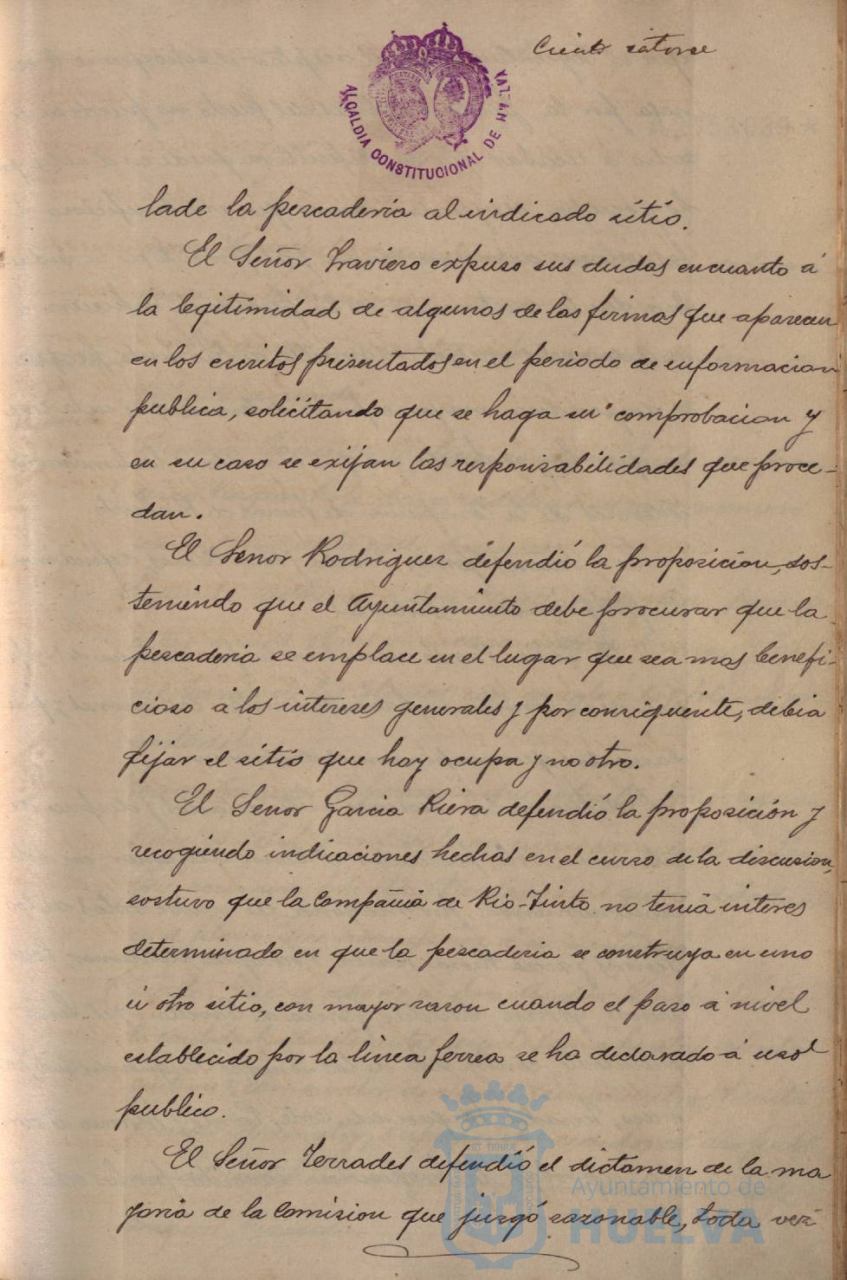 Ciento catorce
ALCALDIA CONSTITUCIONAL DE HUELVA
lade la pescaderia al indicado sitio.
El Señor Traviero expuso sus dudas en cuanto á
la legitimidad de algunos de las firmas que aparecen
en los escritos presentados en el periodo de informacion
publica, solicitando que se haga su comprobacion y
en su caso se exijan las responsabilidades que proce-
dan.
El Señor Rodriguez defendió la proposicion, sos-
teniendo que el Ayuntamiento debe procurar que la
pescaderia se emplace en el lugar que sea mas benefi-
cioso á los intereses generales y por consiguiente, debia
fijar el sitio que hoy ocupa y no otro.
El Señor Garcia Riera defendió la proposición y
recogiendo indicaciones hechas en el curso de la discusion,
sostuvo que la Compañia de Rio-Tinto no tenia interes
determinado en que la pescaderia se construya en uno
ú otro sitio, con mayor razon cuando el paso á nivel
establecido por la linea ferrea se ha declarado á uso
publico.
El Señor Terrades defendió el dictamen de la ma
yoria de la Comision que juzgó razonable, toda vez
Ayuntamiento de
HUELVA